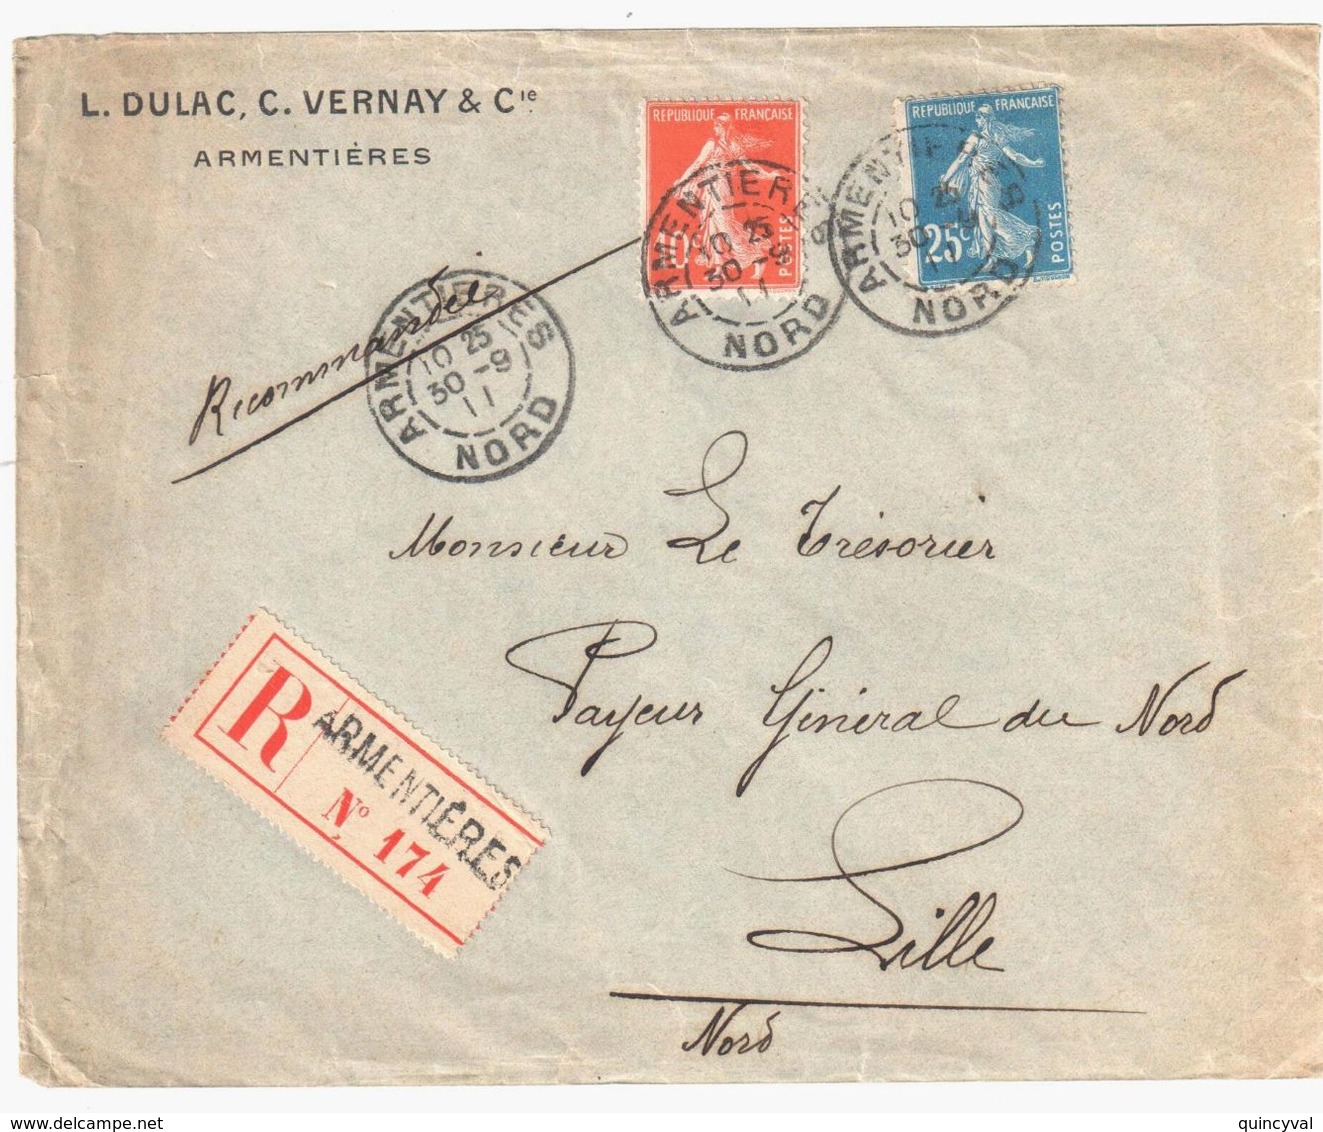 L. DULAC, C. VERNAY & Cie
ARMENTIÈRES
REPUBLIQUE FRANÇAISE
10c
POSTES
REPUBLIQUE FRANÇAISE
25c
POSTES
ARMENTIERES
10 25
30 - 9
11
NORD
ARMENTIERES
10 25
30 - 9
11
NORD
ARMENTIERES
10 25
30 - 9
11
NORD
Recommandée
Monsieur Le Trésorier
Payeur Général du Nord
Lille
Nord
R
ARMENTIÉRES
No 174
delcampe.net
quincyval